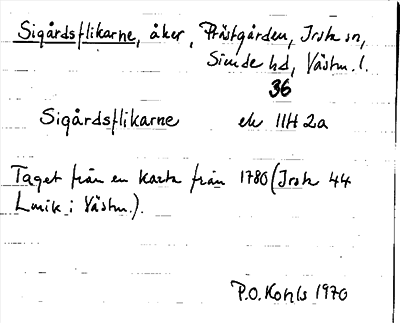 Sigårdsflikarne, åker, Prästgården, Irsta sn,
Siende hd, Västm. l.
36
Sigårdsflikarne ek 11H 2a
Taget från en karta från 1780 (Irsta 44
Lmk i Västm.).
P.O. Kohls 1970